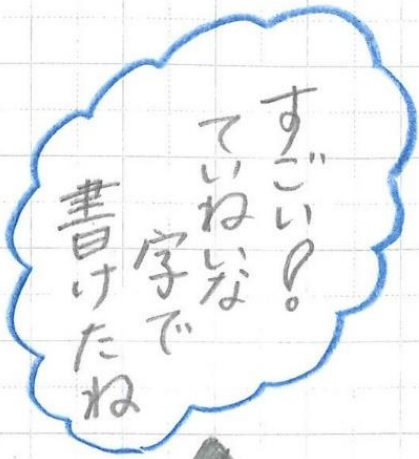 すごい!
ていねいな
字で
書けたね